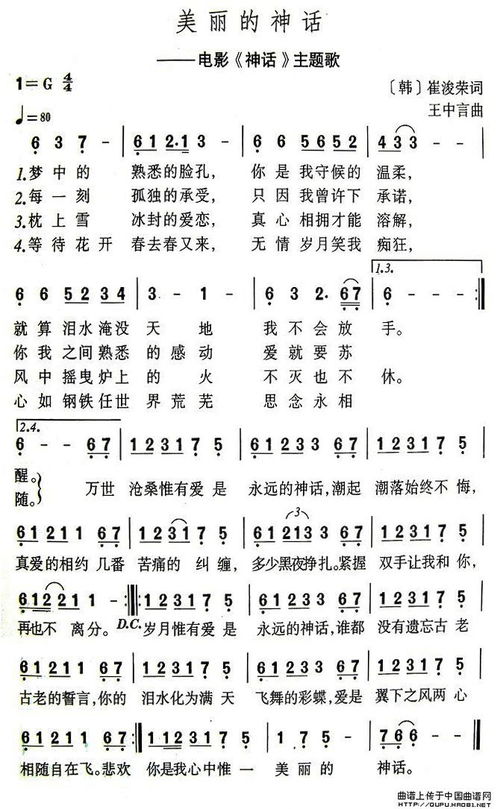 美丽的神话
——电影《神话》主题歌
1=G 4/4
〔韩〕崔浚荣词
♩=80
王中言曲
6 3 7 - | 6 1 2·1 3 | 6 6 5652 | 4 3 3 - |
1.梦中的 熟悉的脸孔, 你是我守候的 温柔,
2.每一刻 孤独的承受, 只因我曾许下 承诺,
3.枕上雪 冰封的爱恋, 真心相拥才能 溶解,
4.等待花开 春去春又来, 无情岁月笑我 痴狂,
1.3.
6 6 52 34 | 3 - 1 - | 6 6 3 2· 67 | 6 - - - :||
就算泪水淹没 天地 我不会放 手。
你我之间熟悉的 感动 爱就要苏
风中摇曳炉上的 火 不灭也不 休。
心如钢铁任世 界荒芜 思念永相
2.4.
6 - - 67 | 123175 | 6 1 2 1 1 67 | 123175 |
醒。
随。
万世 沧桑惟有爱是 永远的神话,潮起 潮落始终不悔,
6 1 2 1 1 67 | 123175 | 6 1 2 1 1 67 | 123175 |
3
真爱的相约几番 苦痛的纠缠, 多少黑夜挣扎。紧握 双手让我和你,
6 1 2 2 1 1 | 6 - - 67 :|| 123175 | 6 1 2 1 1 67 | 123175 |
再也不离分。D.C.岁月惟有爱是 永远的神话,谁都 没有遗忘古老
6 1 2 1 1 67 | 123175 | 6 1 2 1 1 67 | 123175 |
古老的誓言,你的 泪水化为满天 飞舞的彩蝶,爱是 翼下之风两心
6 1 2 1 1 67 :|| 1 1 2 3 1 7 5 | 5 - - - | 7 6 6 - ||
相随自在飞。悲欢 你是我心中惟一 美丽的 神话。
曲谱上传于中国曲谱网
http://QUPU.HAOBI.NET